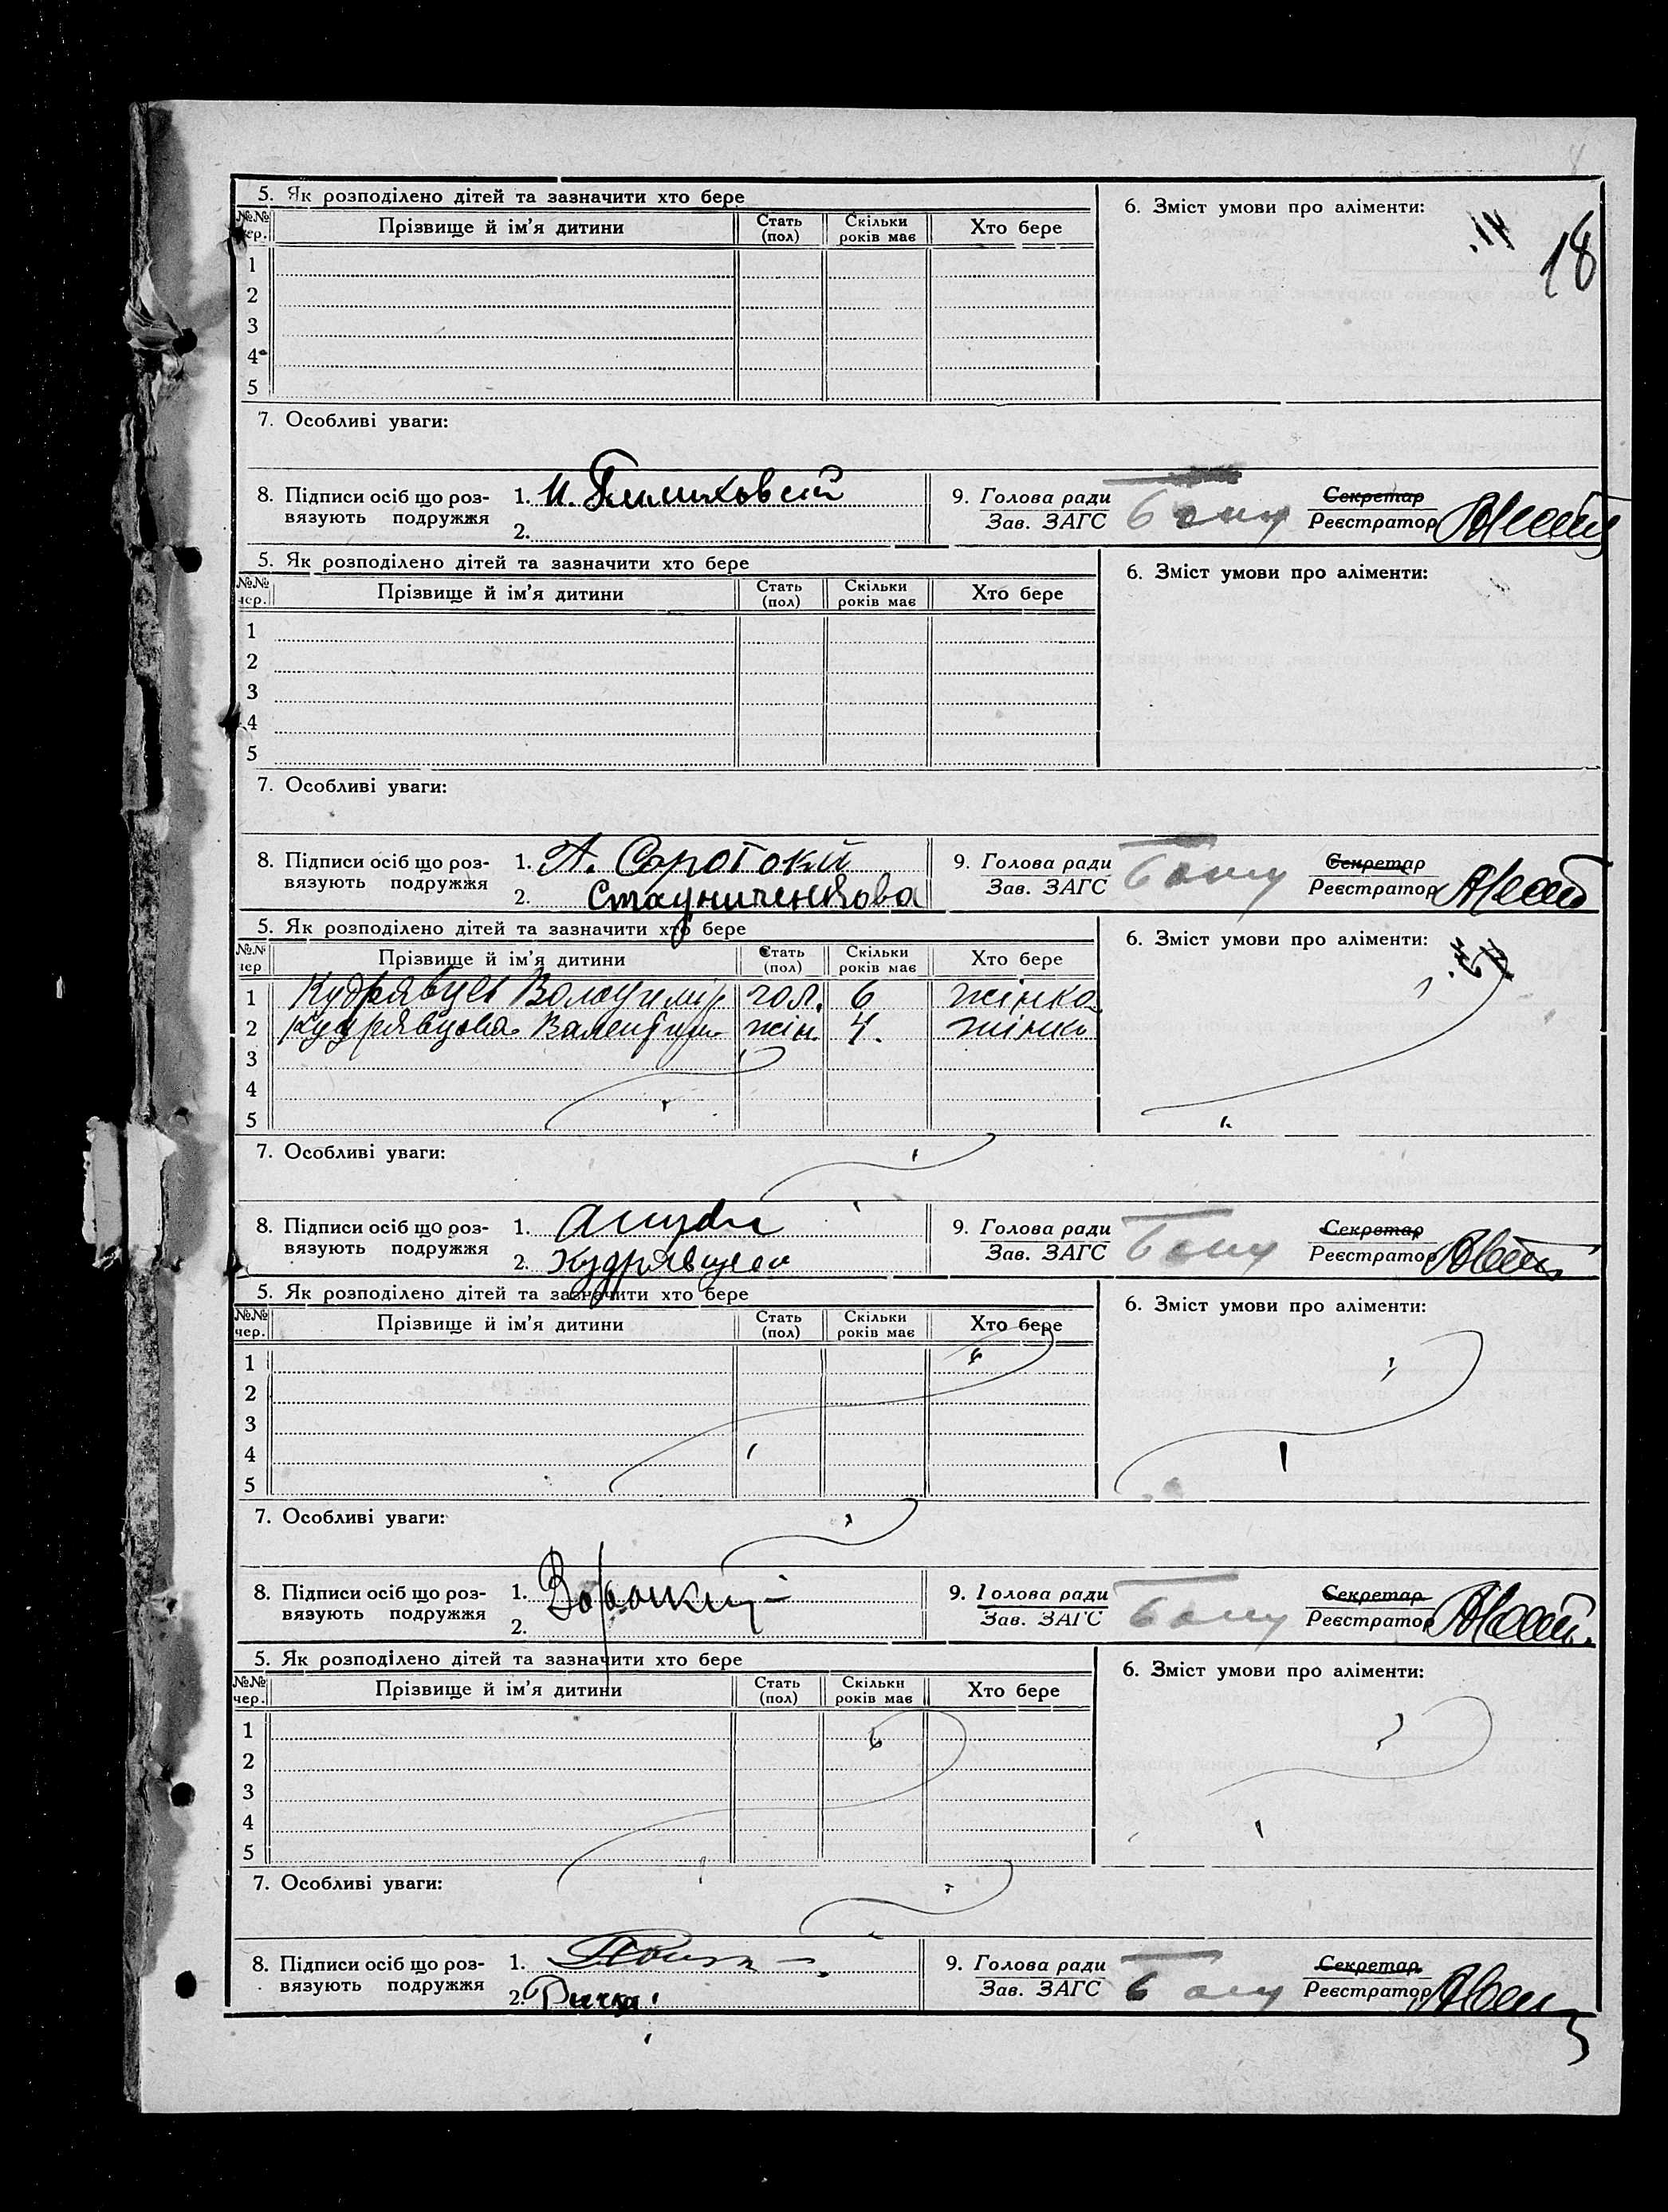 18
5. Як розподілено дітей та зазначити хто бере
6. Зміст умови про аліменти:
№№ чер. Прізвище й ім'я дитини Стать (пол) Скільки років має Хто бере
1
2
3
4
5
7. Особливі уваги:
8. Підписи осіб що роз-
вязують подружжя
1. И.
2.
9. Голова ради
Зав. ЗАГС
Секретар
Реєстратор
5. Як розподілено дітей та зазначити хто бере
6. Зміст умови про аліменти:
№№ чер. Прізвище й ім'я дитини Стать (пол) Скільки років має Хто бере
1
2
3
4
5
7. Особливі уваги:
8. Підписи осіб що роз-
вязують подружжя
1. А. Соротокий
2.
9. Голова ради
Зав. ЗАГС
Секретар
Реєстратор
5. Як розподілено дітей та зазначити хто бере
6. Зміст умови про аліменти:
№№ чер Прізвище й ім'я дитини Стать (пол) Скільки років має Хто бере
1 Кудрявцев Володимир чол. 6 жінка
2 Кудрявцова Валентина жін. 4. жінка
3
4
5
7. Особливі уваги:
8. Підписи осіб що роз-
вязують подружжя
1.
2. Кудрявцева
9. Голова ради
Зав. ЗАГС
Секретар
Реєстратор
5. Як розподілено дітей та зазначити хто бере
6. Зміст умови про аліменти:
№№ чер. Прізвище й ім'я дитини Стать (пол) Скільки років має Хто бере
1
2
3
4
5
7. Особливі уваги:
8. Підписи осіб що роз-
вязують подружжя
1.
2.
9. Голова ради
Зав. ЗАГС
Секретар
Реєстратор
5. Як розподілено дітей та зазначити хто бере
6. Зміст умови про аліменти:
№№ чер. Прізвище й ім'я дитини Стать (пол) Скільки років має Хто бере
1
2
3
4
5
7. Особливі уваги:
8. Підписи осіб що роз-
вязують подружжя
1.
2.
9. Голова ради
Зав. ЗАГС
Секретар
Реєстратор